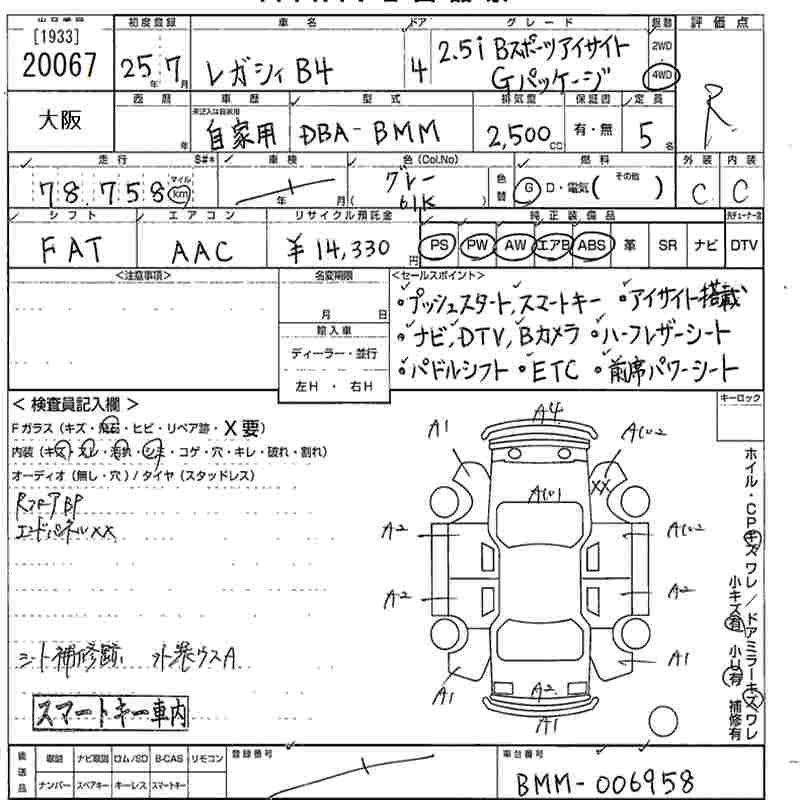 [1933]
20067
初度登録 車名 ドア グレード 駆動 評価点
25年 7月 レガシィ B4 4 2.5i Bスポーツアイサイト Gパッケージ 2WD 4WD R
大阪
西暦 車歴 型式 排気量 保証書 定員
未記入は自家用
年 自家用 DBA-BMM 2,500cc 有・無 5名
走行 車検 色(Col.No) 色替 燃料 外装 内装
78,758 マイル km 年 月 グレー 61K G D・電気( その他 ) C C
シフト エアコン リサイクル預託金 純正装備品
FAT AAC ¥14,330円 PS PW AW エアB ABS 革 SR ナビ DTV
<注意事項> 名変期限 <セールスポイント>
月 日
・プッシュスタート,スマートキー ・アイサイト搭載
輸入車
・ナビ,DTV,Bカメラ ・ハーフレザーシート
ディーラー・並行
・パドルシフト ・ETC ・前席パワーシート
左H ・ 右H
<検査員記入欄> キーロック
Fガラス(キズ・飛石・ヒビ・リペア跡・X要)
内装(キズ・スレ・汚れ・シミ・コゲ・穴・キレ・破れ・割れ)
オーディオ(無し・穴)/タイヤ(スタッドレス)
RフロアBP
エンドパネルXX
シート補修跡
スマートキー車内
A4
A1
XX
A2
A2
A2
A1
A2
A1
A1
ホイル・CPキズ ワレ/ドアミラーキズ ワレ
小キズ有 小U有 補修有
後送品 取説 ナビ取説 ロム/SD B-CAS リモコン 登録番号 車台番号
ナンバー スペアキー キーレス スマートキー BMM-006958